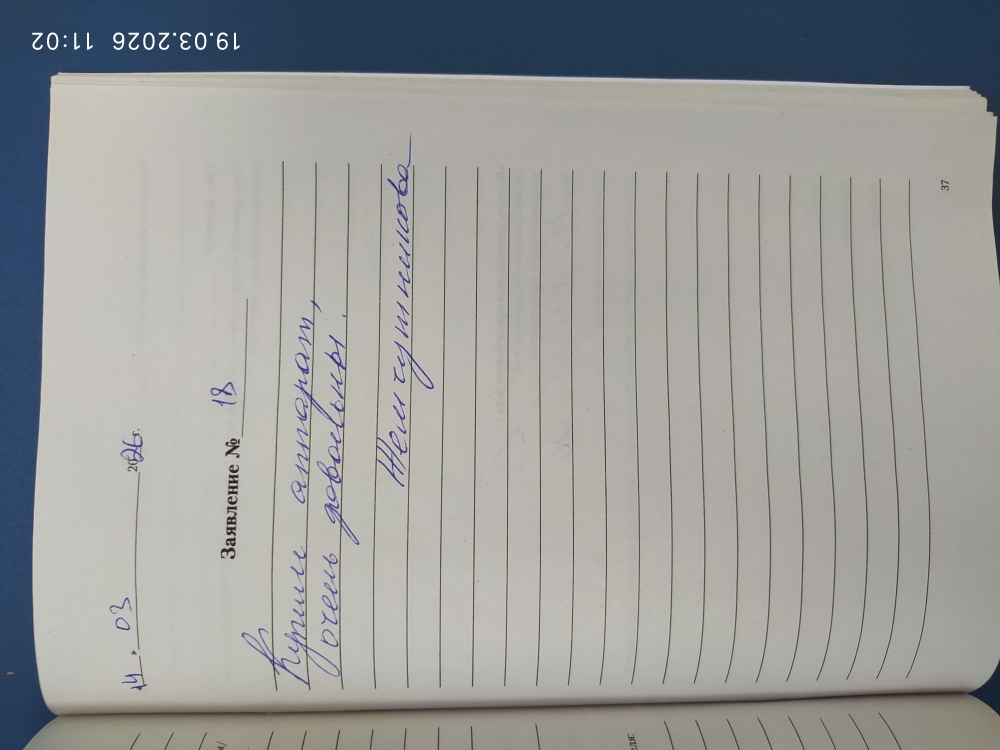 19.03.2026 11:02
14 » 03 2026г.
Заявление № 18
Купили аппарат,
очень довольны.
Жемчужникова
37